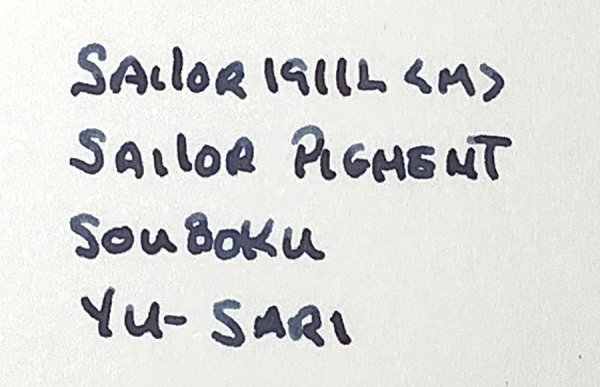 SAilOR 1911L <M>
SAilOR PIGMENT
SOUBOKU
YU-SARI